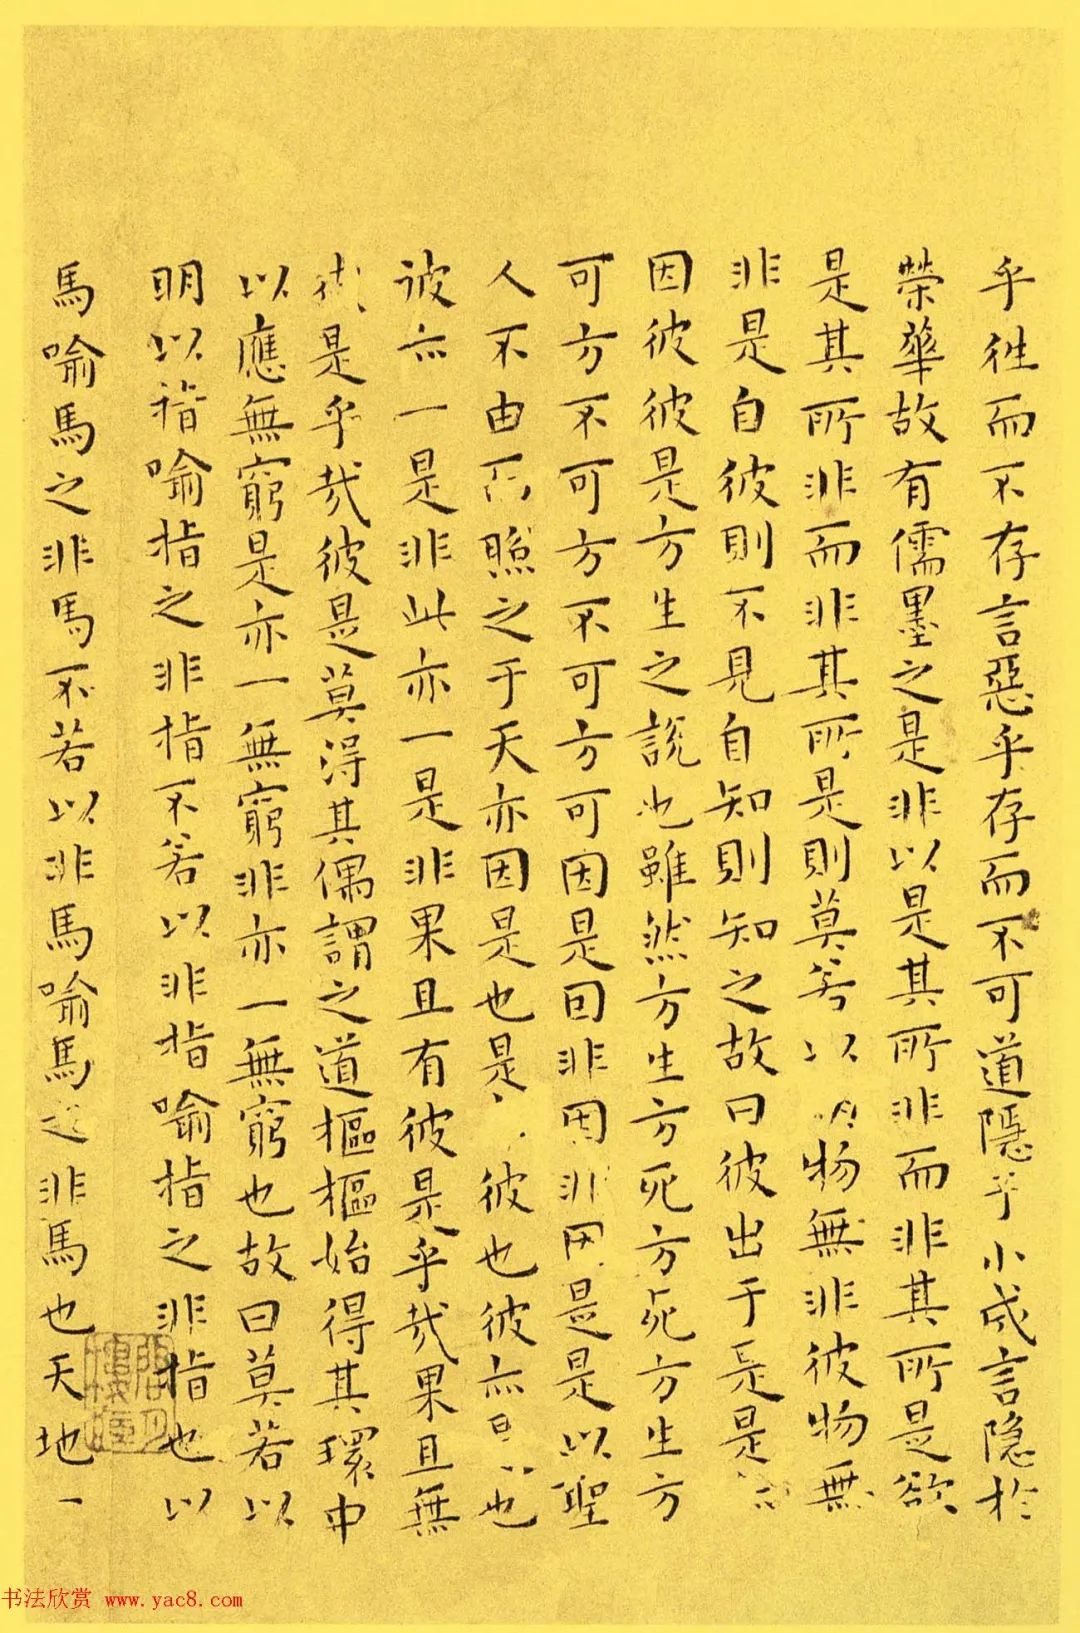 乎往而不存言惡乎存而不可道隱乎小成言隐於
榮華故有儒墨之是非以是其所非而非其所是欲
是其所非而非其所是則莫若以明物無非彼物無
非是自彼則不見自知則知之故曰彼出于是是
因彼彼是方生之説也雖然方生方死方死方生方
可方不可方不可方可因是因非因非因是是以聖
人不由而照之于天亦因是也是彼也彼亦是也
彼亦一是非此亦一是非果且有彼是乎哉果且無
彼是乎哉彼是莫得其偶謂之道樞樞始得其環中
以應無窮是亦一無窮非亦一無窮也故曰莫若以
明以指喻指之非指不若以非指喻指之非指也以
馬喻馬之非馬不若以非馬喻馬之非馬也天地一
书法欣赏 www.yac8.com